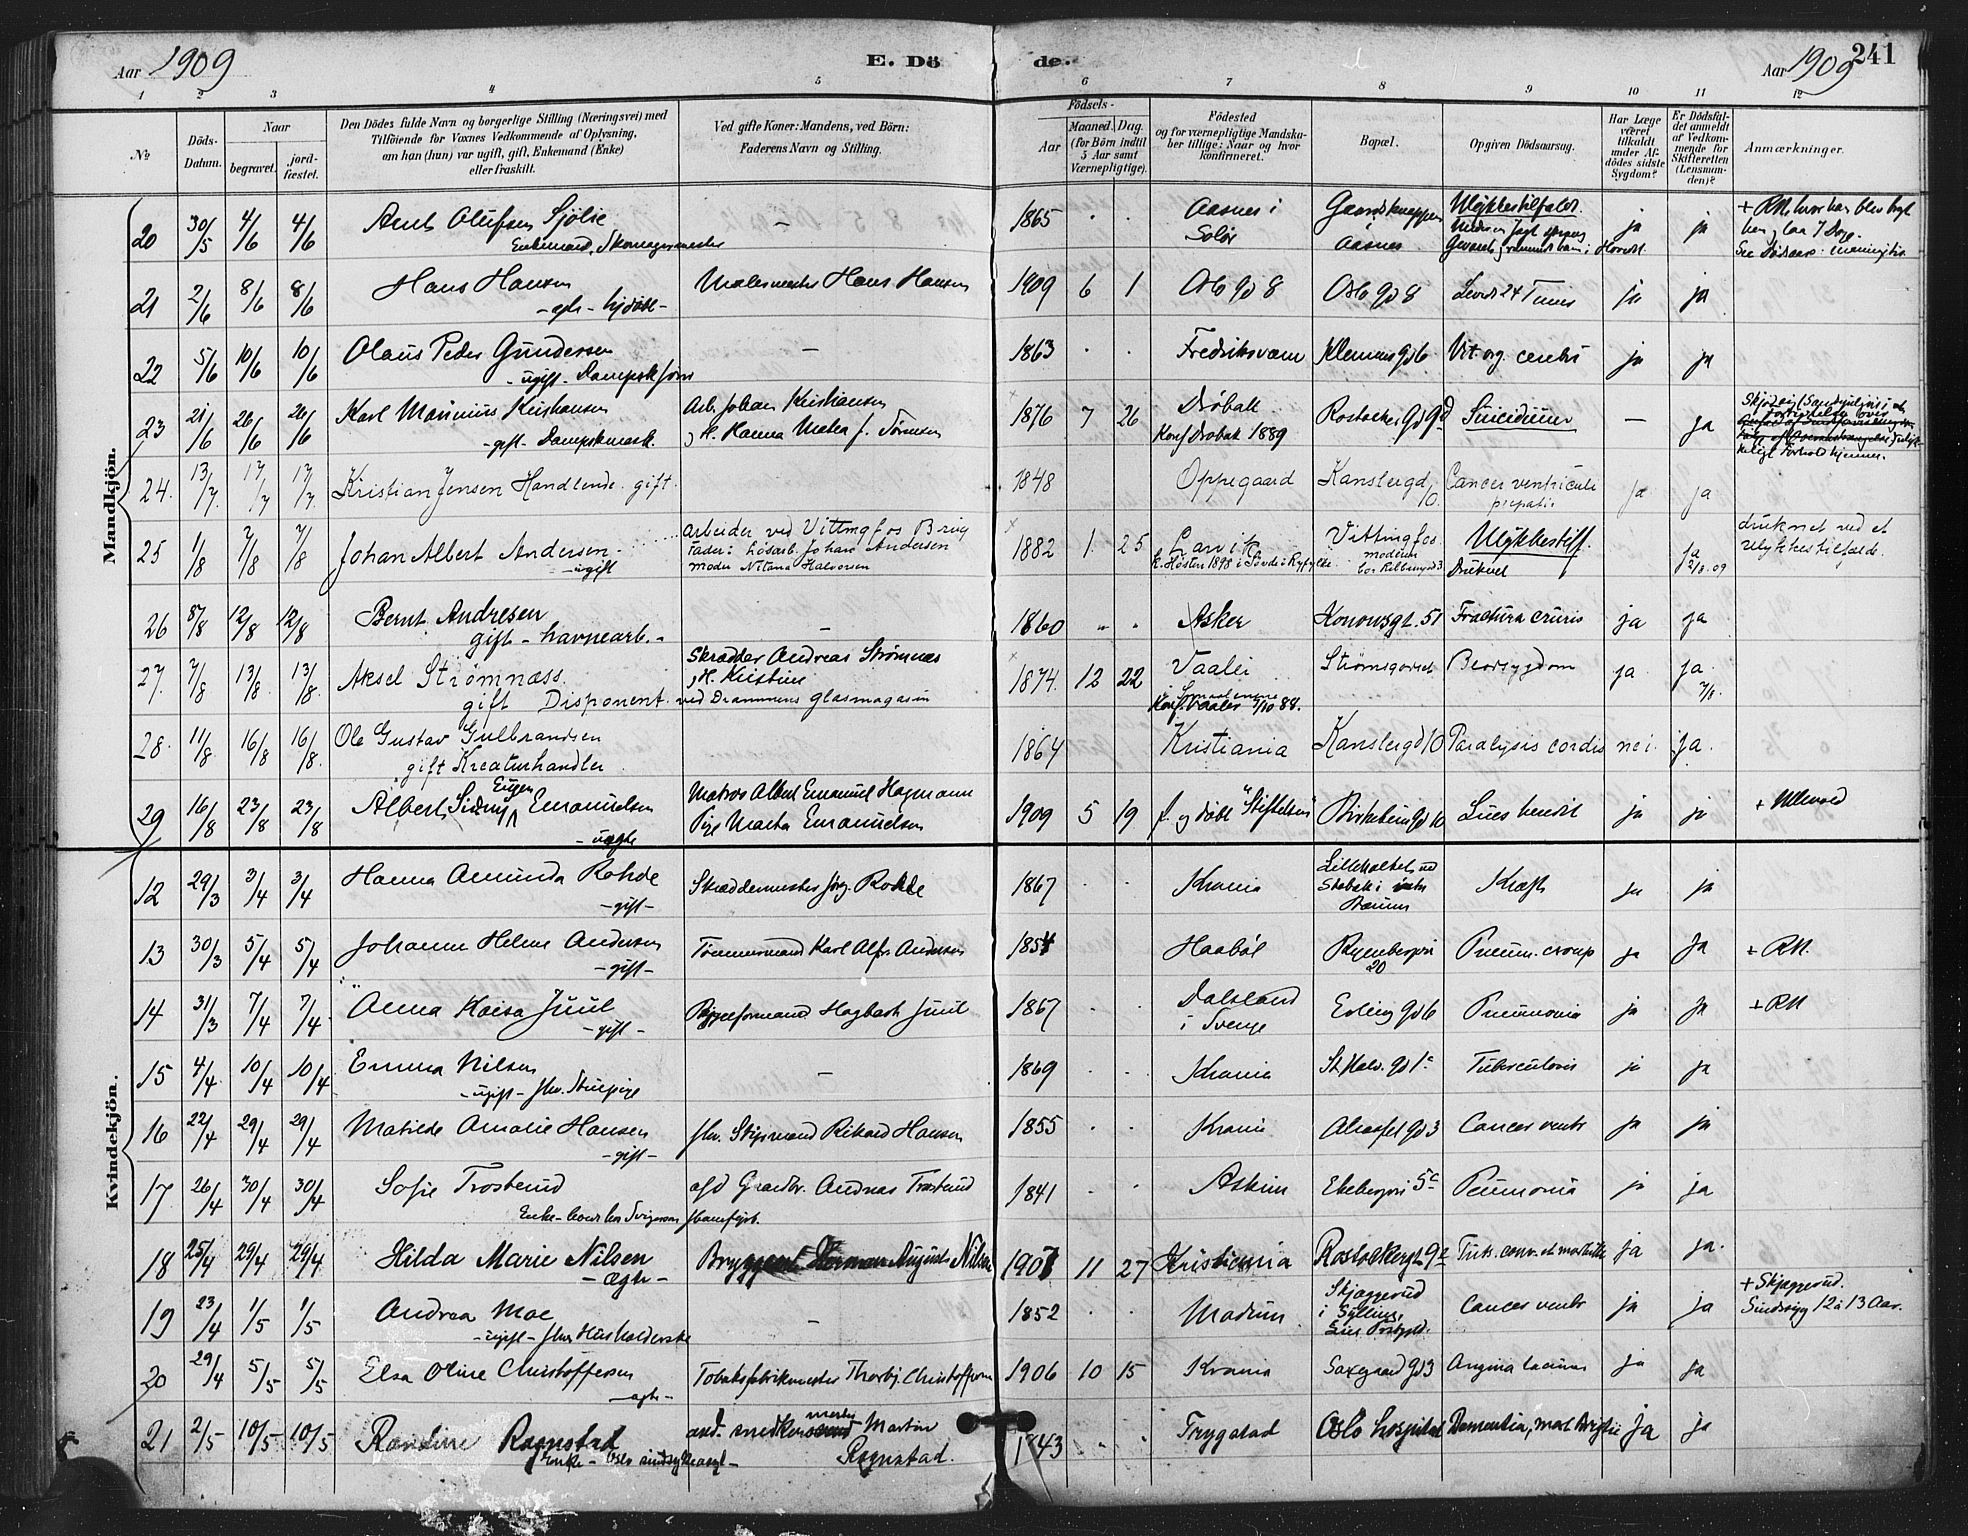 Aar 1909 E. Dö de. Aar 1909 241
1 2 3 4 5 6 7 8 9 10 11 12
No Döds-Datum. Naar begravet. jord-fæstet. Den Dödes fulde Navn og borgerlige Stilling (Næringsvei) med Tilföiende for Voxnes Vedkommende af Oplysning, om han (hun) var ugift, gift, Enkemand (Enke) eller fraskilt. Ved gifte Koner: Mandens, ved Börn: Faderens Navn og Stilling. Födsels- Aar Maaned. Dag. (for Börn indtil 5 Aar samt Værnepligtige). Födested og for værnepligtige Mandska-ber tillige: Naar og hvor konfirmeret. Bopæl. Opgiven Dödsaarsag. Har Læge været tilkaldt under Af-dödes sidste Sygdom? Er Dödsfal-det anmeldt af Vedkom-mende for Skifteretten (Lensman-den)? Anmærkninger.
Mandkjön.
20 30/5 4/6 4/6 Olufsen Sjölie — 1865 . . Aasnes i Solör Aasnes Ulykkestilfælde. ja ja
Enkemand, Skomagermester
21 2/6 8/6 8/6 Hans Hansen Malermester Hans Hansen 1909 6 1 Oslo Gd 8 Oslo Gd 8 Levede 24 Timer ja ja
- ægte - hjdöbt -
22 5/6 10/6 10/6 Olaus Peder Gundersen — 1863 . . Fredriksværn Klemens Gd 6. Vit. org. cordis ja ja
- ugift -
23 21/6 26/6 26/6 Karl Marinius Kristiansen Arb. Johan Kristiansen 1876 7 26 Dröbak Rostocker Gd 9 Suicidium — ja
- gift - Dampskmask. Konf Dröbak 1889
24. 13/7. 17/7 17/7. Kristian Jensen Handlende. gift. 1848 Oppegaard Kanslergd 10. Cancer ventriculi ja ja
25 1/8 7/8 7/8 Johan Albert Andersen - ugift Arbeider ved Vittingfos Brug 1882 1. 25 Larvik Vittingfos Ulykkestilf. ja 2/8.09 druknet ved et
Fader: Lösarb. Johan Andersen
moder Halvorsen Druknet Ulykkestilfælde.
26 8/8 12/8 12/8 Bernt Andresen — 1860 „ „ Asker Konowsgt. 51 Fractura cruris ja ja
gift - havnearb. -
27. 7/8 13/8. 13/8. Aksel Strømnæss. Skrædder Andreas Strømnæs 1874. 12 22 Vaaler Strømsgodset Brorsygdom ja. ja.
gift Disponent ved Drammens glasmagasin
28. 11/8. 16/8 16/8. Ole Gustav Gulbrandsen 1864 Kristiania Kanslergd 10 Paralysis cordis nei. ja.
gift Kreaturhandler
29 16/8 23/8 23/8 Albert, Sidney Eugen Emanuelsen Matros Albert Emanuel Hagmann 1909 5 19 f. og döbt "Stiftelsen" Birkebein Gd 10 Lues heredit ja ja + Ullevold
- uægte Pige Marta Emanuelsen
Kvindekjön.
12 29/3 3/4 3/4 Hanna Amunda Rohde Skræddermester Jörg. Rohde 1867 . . Krania Stabæk i Bærum Kræft ja ja
- gift -
13 30/3 5/4 5/4 Johanne Helene Andersen Tömmermand Karl Alfr. Andersen 1854 . . Haaböl Ryenbergvei 20 Pneum. croup ja ja + RH.
- gift -
14 31/3 7/4 7/4 Anna Kaisa Juul Hagbart Juul 1867 . . Dalsland i Sverige Erling Gd 6 Pneumonia ja ja + RH
- gift -
15 4/4. 10/4 10/4 Emma Nilsen — 1869 . . Krania St Halv. Gd 1c Tuberculosis ja ja
- ugift - fhv. Stuepige
16 22/4 29/4 29/4 Matilde Amalie Hansen fhv. Rikard Hansen 1855 . . Krania Gd 3 Cancer ventr ja ja
- gift -
17 26/4 30/4 30/4 Sofie Trosterud afd Gaardbr. Andreas Trosterud 1841 . . Askim Ekebergvei 5c Penmonia ja ja
Enke - hos Svigersön
18 25/4 29/4 29/4 Hilda Marie Nilsen Herman August Nilsen 1907 11 27 Kristiania Rostockergt 9a Tuss. conv. et morbilli ja ja.
- ægte -
19 23/4 1/5 1/5 Andrea Moe — 1852 . . Modum Skjæggerud i Sylling Lier Cancer ventr ja ja + Skjæggerud. Sindssyg 12 à 13 Aar.
- ugift - fhv Husholderske
20 29/4 5/5 5/5 Elsa Oline Christoffersen Tobaksfabrikmester Thorbj. Christoffersen 1906 10 15 Krania Saxegaard Gd 3 Angina ja ja
- ægte -
21 2/5 10/5 10/5 Randine Rognstad Martin Rognstad. 1843 . . Trygstad Oslo hospital Dementia, ja ja
Enke - Oslo sindsykeasyl -